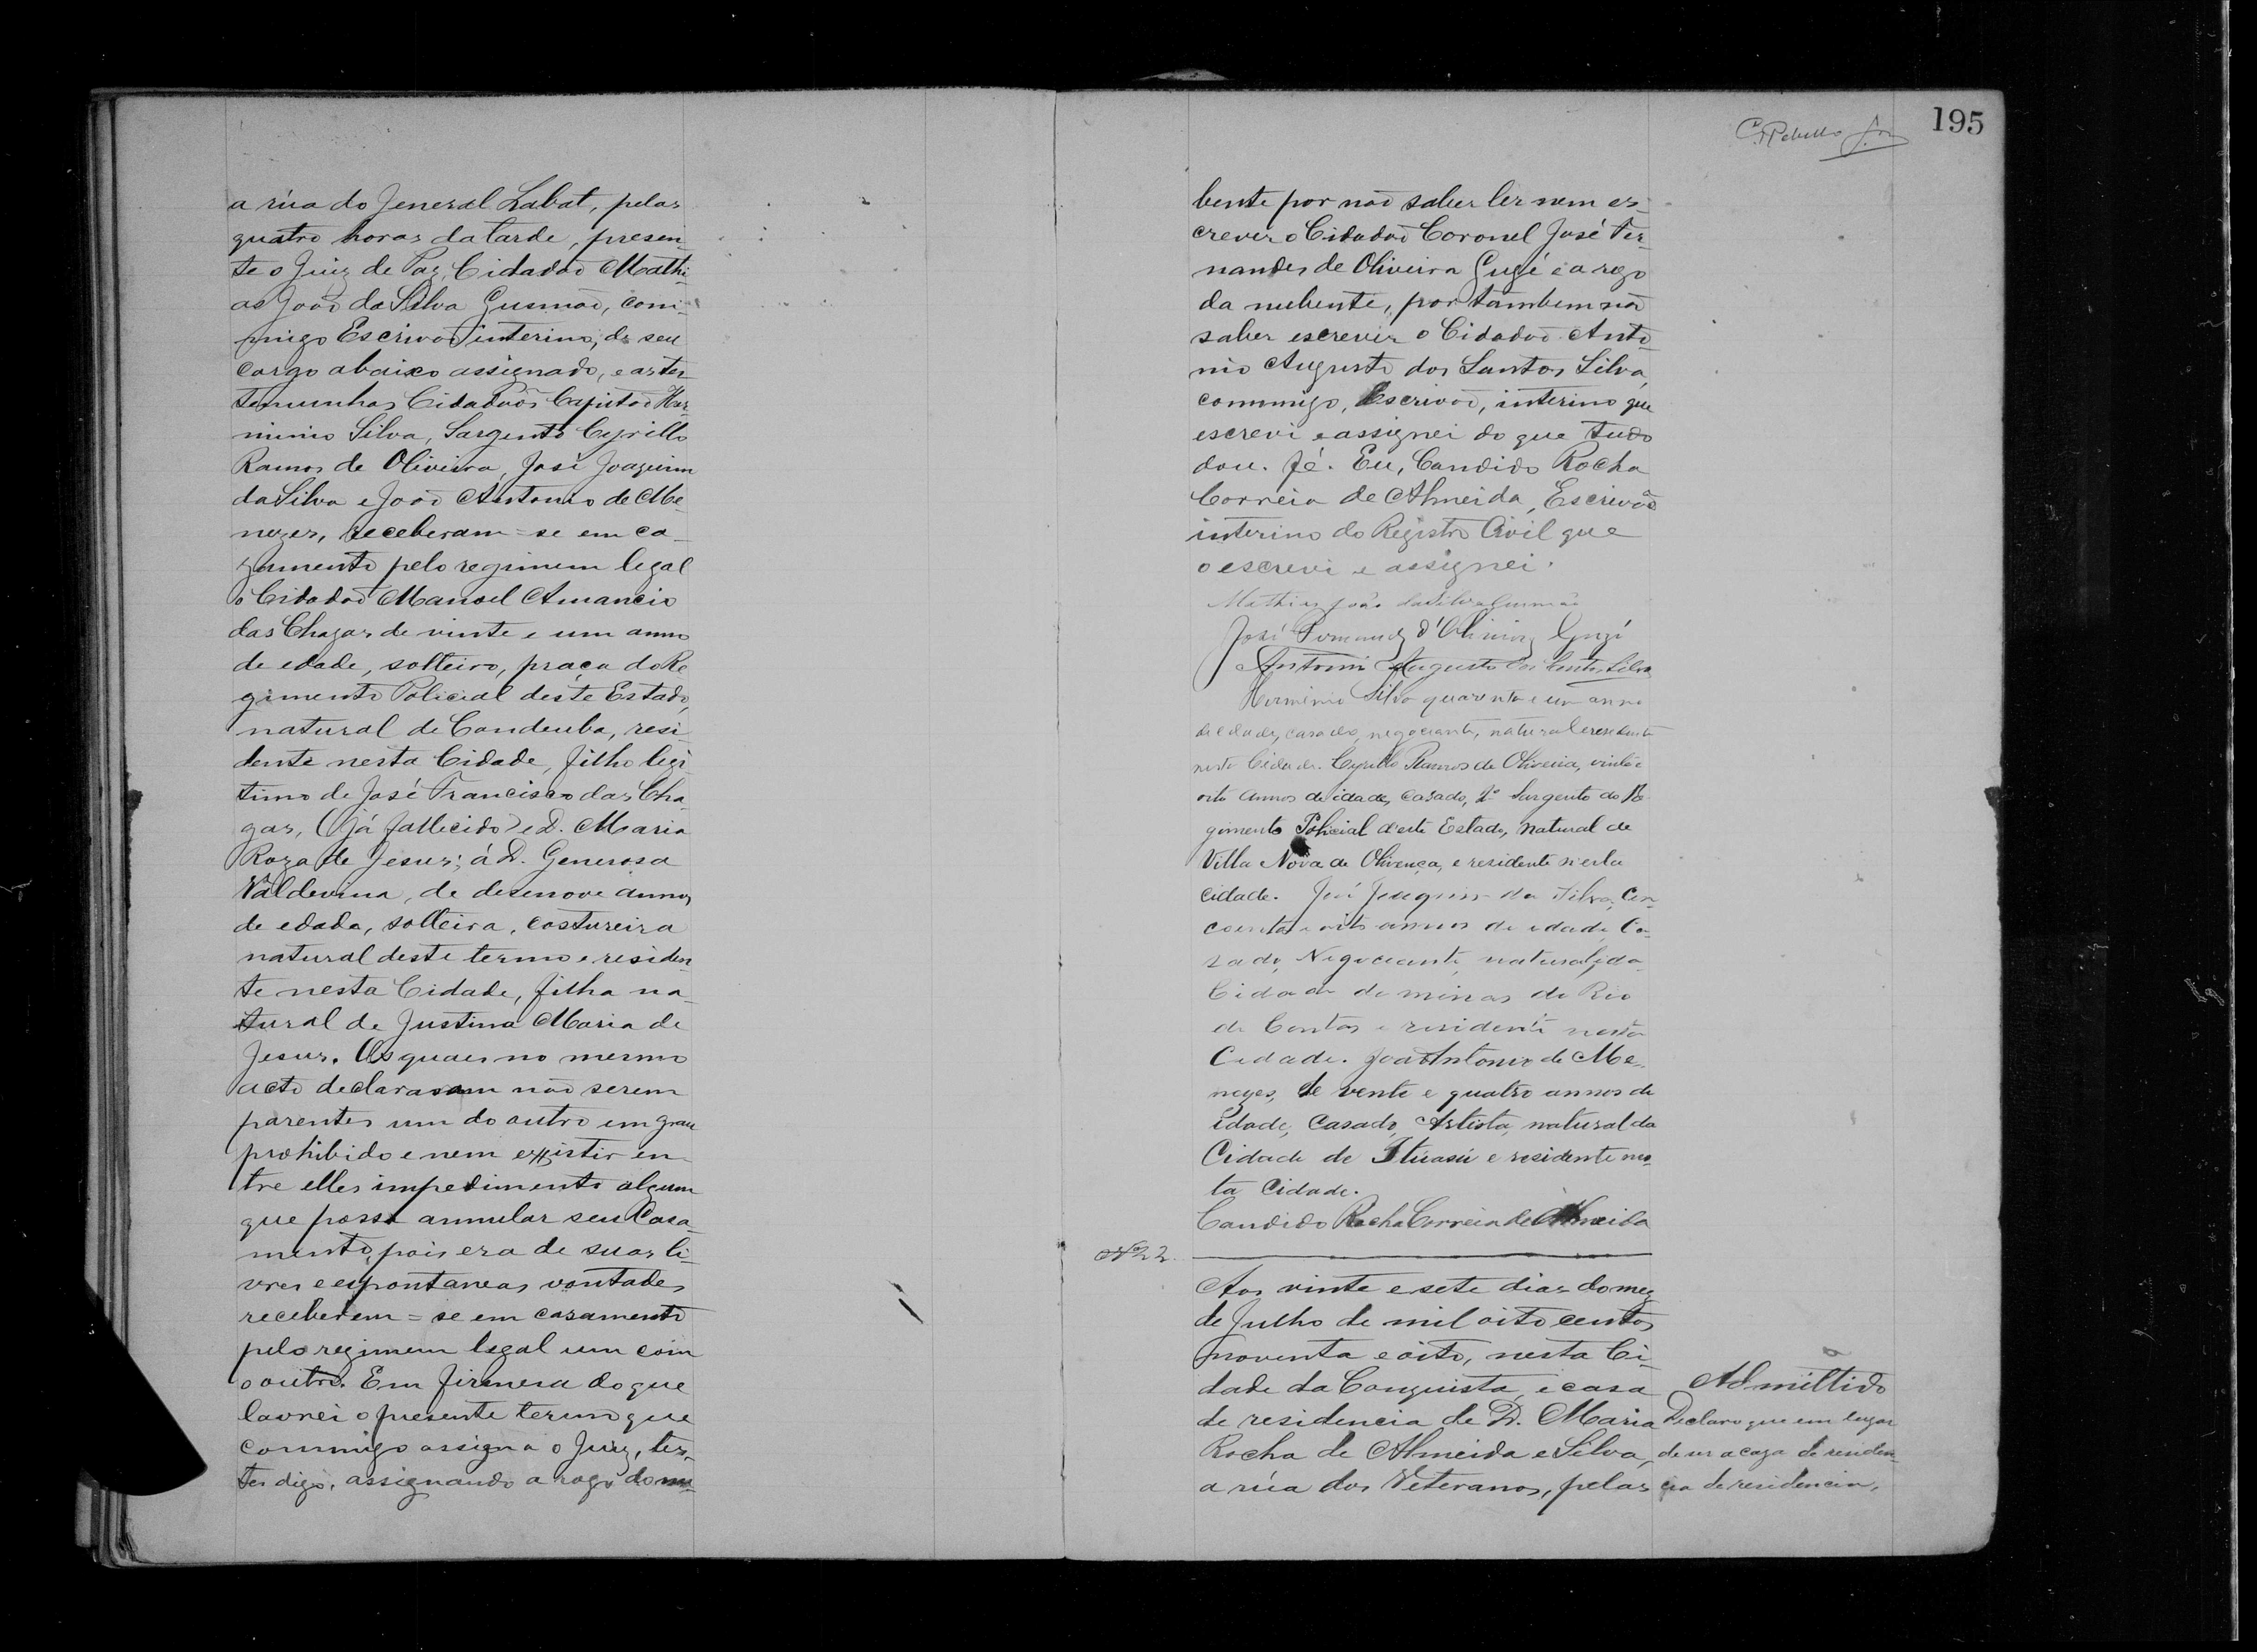 a rúa do Jeneral Labat, pelas
quatro horas da tarde, presen-
te o Juiz de Paz, Cidadaõ Mathi-
as Joaõ da Silva Gusmaõ, com-
migo Escrivaõ interino, de seu
cargo abaixo assignado, e as tes-
temunhas Cidadaõs Capitaõ Her-
minio Silva, Sargento Cyrillo
Ramos de Oliveira, José Joaquim
da Silva e Joaõ Antonio de Me-
nezes, receberam=se em ca-
zamento pelo regimem legal
o Cidadaõ Manoel Amancio
das Chagas de vinte e um anno
de edade, solteiro, praça do Re
gimento Policial deste Estado,
natural de Condeuba, resi-
dente nesta Cidade, filho legi-
timo de José Francisco das Cha-
gas, (já fallecido) e D. Maria
Roza de Jesus; á D. Generosa
Valdevina, de desenove annos
de edade, solteira, costureira
natural deste termo e residen-
te nesta Cidade, filha na-
tural de Justina Maria de
Jesus. Os quaes no mesmo
acto declararam naõ serem
parentes um do outro em grau
prohibido e nem existir en-
tre elles impedimento algum
que possa annular seu Casa-
mento, pois era de suas li-
vres e espontaneas vontades
receberem=se em casamento
pelo regimem legal um com
o outro. Em firmesa do que
lavrei o presente termo que
commigo assigna o Juiz, tes-
tes digo, assignando a rogo do nu-
195
bente por naõ saber ler nem es-
crever o Cidadaõ Coronel José Fer-
nandes de Oliveira Gugé e a rogo
da nubente, por tambem naõ
saber escrever o Cidadaõ Anto-
nio Augusto dos Santos Silva,
commigo, Escrivaõ, interino que
escrevi e assignei do que tudo
dou fé. Eu, Candido Rocha
Correia de Almeida, Escrivaõ
interino do Registro Civil que
o escrevi e assignei.
Mathias João da Silva Gusmão
José Fernandes d'Oliveira Gugé
Antonio Augusto dos Santos Silva
Herminio Silva quarenta e um anno
de edade, casado, negociante, natural e residente
nesta Cidade. Cyrillo Ramos de Oliveira, vinte e
oito annos de idade, casado, 2º Sargento do Re-
gimento Policial d'este Estado, natural de
Villa Nova de Olivença, e residente n'esta
cidade. José Joaquim da Silva, Cin-
coenta e oito annos de edade, Ca-
sado, Negociante, natural da
Cidade de minas do Rio
de Contas e residente nesta
Cidade. Joaõ Antonio de Me-
nezes, de vente e quatro annos de
idade, casado, Artista, natural da
Cidade de Ituasú e residente nes-
ta Cidade.
Candido Rocha Correia de Almeida
Nº 22.
Aos vinte e sete dias do mez
de Julho de mil oito centos
noventa e oito, nesta Ci-
dade da Conquista, e casa
de residencia de D. Maria
Rocha de Almeida e Silva,
a rúa dos Veteranos, pelas
Admittido
Declaro que em lugar
de a caza de residen-
cia de residencia,